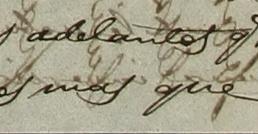 adelantes q
es mas que